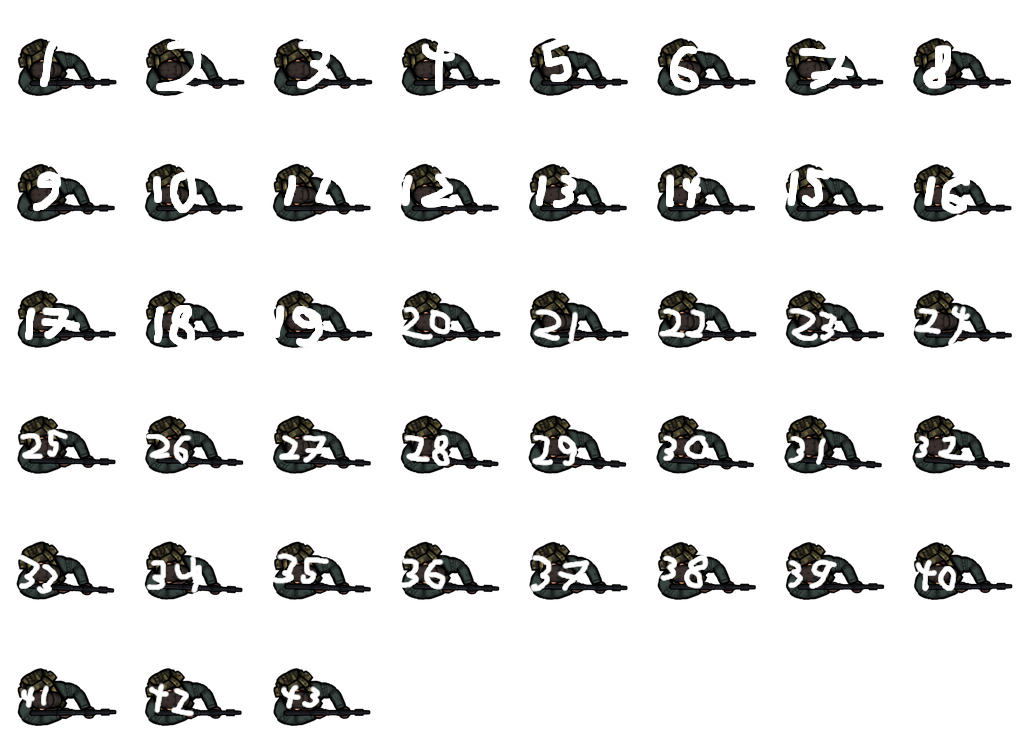 1 2 3 4 5 6 7 8
9 10 11 12 13 14 15 16
17 18 19 20 21 22 23 24
25 26 27 28 29 30 31 32
33 34 35 36 37 38 39 40
41 42 43